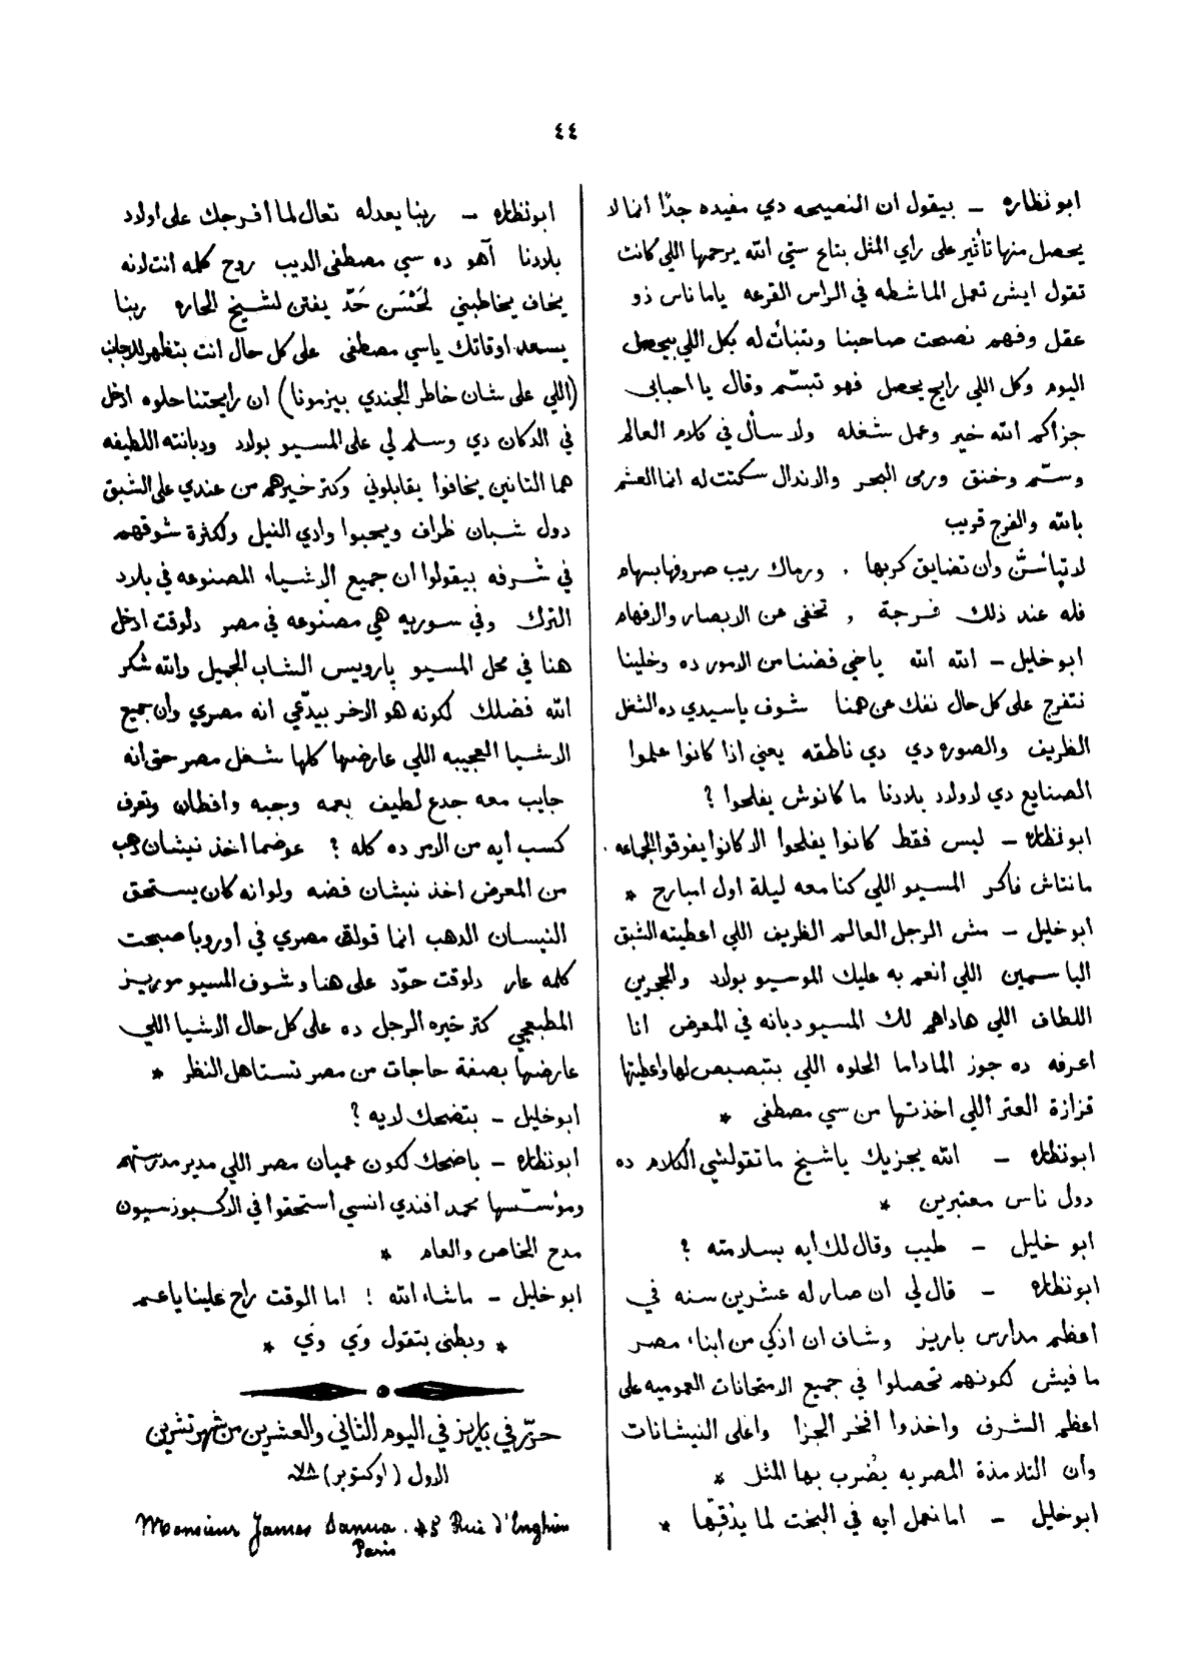 ٤٤
ابو نظاره – بيقول ان النصيحه دي مفيده جدًا انما لا
يحصل منها تأثير على راي المثل بتاع ستي الله يرحمها اللي كانت
تقول ايش تعمل الماشطه في الراس القرعه ياما ناس ذو
عقل وفهم نصحت صاحبنا وتنبأت له بكل اللي بيحصل
اليوم وكل اللي رايح يحصل فهو تبسّم وقال يا احبابي
جزاكم الله خير وعمل شغله ولا سأل في كلام العالم
وسمّ وخنق ورمى البحر والاندال سكتت له انما العشم
بالله والفرج قريب
لا تيأسنّ وأن تضايق كربها . ورماك ريب صروفها بسهام
فله عند ذلك فرجة , تخفى عن الابصار والافهام
ابو خليل – الله الله ياخي فضنا من الامور ده وخلينا
نتفرج على كل حال نفك عن همنا شوف يا سيدي ده الشغل
الظريف والصوره دي دي ناطقه يعني اذا كانوا علموا
الصنايع دي لاولاد بلادنا ما كانوش يفلحوا ؟
ابو نظاره – ليس فقط كانوا يفلحوا الا كانوا يفوقوا الجماعه .
مانتاش فاكر المسيو اللي كنا معه ليلة اول امبارح *
ابو خليل – مش الرجل العالم الظريف اللي اعطيته الشبق
الياسمين اللي انعم به عليك الموسيو بولاد والحجرين
اللطاف اللي هاداهم لك المسيو دبانه في المعرض انا
اعرفه ده جوز الماداما الحلوه اللي بتبصبص لها واعطيتها
قزازة العتر اللي اخذتها من سي مصطفى *
ابو نظاره – الله يجزيك يا شيخ ما تقولشي الكلام ده
دول ناس معتبرين *
ابو خليل – طيب وقال لك أيه بسلامته ؟
ابو نظاره – قال لي ان صار له عشرين سنه في
اعظم مدارس باريز وشاف ان اذكي من ابناء مصر
ما فيش لكونهم تحصلوا في جميع الامتحانات العموميه على
اعظم الشرف واخذوا افخر الجزا واعلى النيشانات
وأن التلامذة المصريه يُضرب بها المثل *
ابو خليل – اما نعمل ايه في البخت لما
ابو نظاره – ربنا يعدله تعال لما أفرجك على اولاد
بلادنا آهو ده سي مصطفى الديب روح كلمه انت لانه
يخاف يخاطبني لحسَن حَدّ يفتن لشيخ الحاره ربنا
يسعد اوقاتك ياسي مصطفى على كل حال انت بتظهر للاجانب
(اللي على شان خاطر الجندي بيزمونا) ان رايحتنا حلوه ادخل
في الدكان دي وسلم لي على المسيو بولاد ودبانته اللطيفه
هما التانين يخافوا يقابلوني وكتر خيرهم من عندي على الشبق
دول شبان ظراف ويحبوا وادي النيل ولكثرة شوقهم
في شرفه بيقولوا ان جميع الاشياء المصنوعه في بلاد
الترك وفي سوريه هي مصنوعه في مصر دلوقت ادخل
هنا في محل المسيو پارويس الشاب الجميل والله شكر
الله فضلك لكونه هو الاخر بيدّعي انه مصري وان جميع
الاشيا العجيبه اللي عارضها كلها شغل مصر حتى انه
جايب معه جدع لطيف بعمه وجبه وافطان وتعرف
كسب أيه من الامر ده كله ؟ عوضما اخذ نيشان دهب
من المعرض اخذ نيشان فضه ولو انه كان يستحق
النيسان الدهب انما قولة مصري في أوروبا صبحت
كلمه عار دلوقت حوّد على هنا وشوف المسيو موريز
المطبعجي كتر خيره الرجل ده على كل حال الاشيا اللي
عارضها بصفة حاجات من مصر تستاهل النظر *
ابو خليل – بتضحك لايه ؟
ابو نظاره – باضحك لكون عميان مصر اللي مدير مدرستهم
ومؤسّسها محمد افندي انسي استحقوا في الاكسبوزسيون
مدح الخاص والعام *
ابو خليل – ماشاء الله ! اما الوقت راح علينا ياعم
* وبطني بتقول وَي وَي *
حرّر في باريز في اليوم الثاني والعشرين من شهر تشرين
الاول (اوكتوبر)
Monsieur James Sanua. 48 Rue d'Enghien
Paris